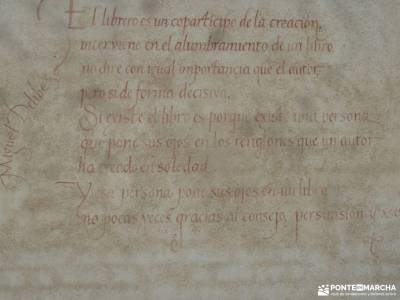 El librero es un copartícipe de la creación,
interviene en el alumbramiento de un libro
no dire con igual importancia que el autor,
pero si de forma decisiva.
Si existe el libro es porque existe una persona
que pone sus ojos en los renglones que un autor
ha creado en soledad
Y esa persona pone sus ojos en un libro
no pocas veces gracias al consejo, persuasión y
Miguel Delibes
PONTE EN MARCHA